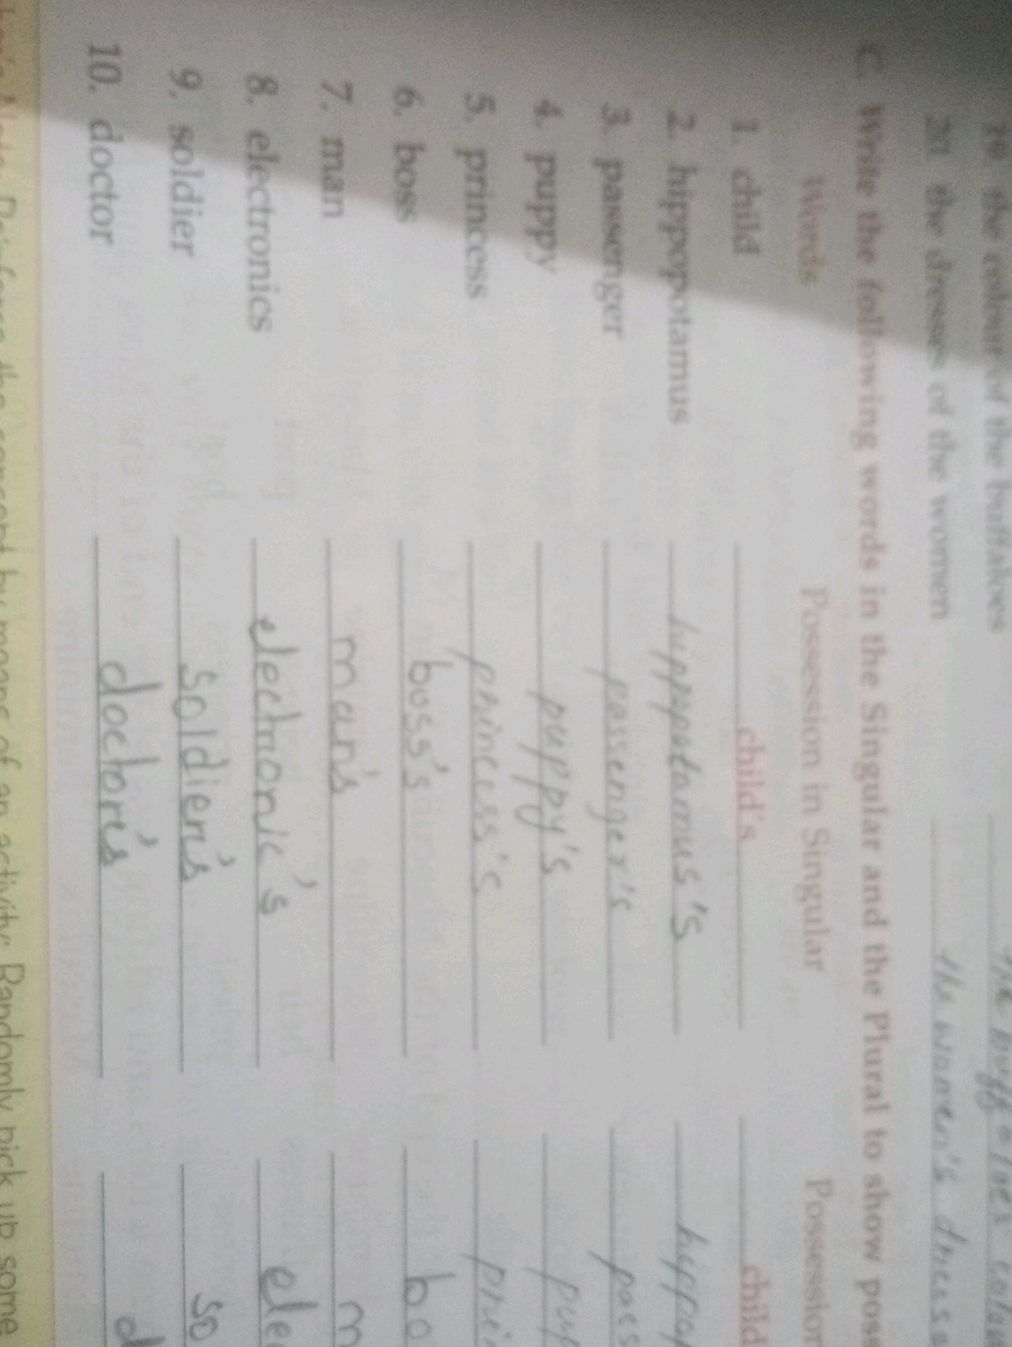 19. the colour of the buffaloes
20. the dresses of the women the women's dresse
C. Write the following words in the Singular and the Plural to show poss
Words Possession in Singular Possession
1. child child's child
2. hippopotamus hippopotamus's hippop
3. passenger passenger's pas
4. puppy puppy's pup
5. princess princess's prin
6. boss boss's bo
7. man man's m
8. electronics electronic's ele
9. soldier soldier's so
10. doctor doctor's d
Note: Reinforce the concept by means of an activity. Randomly pick up some